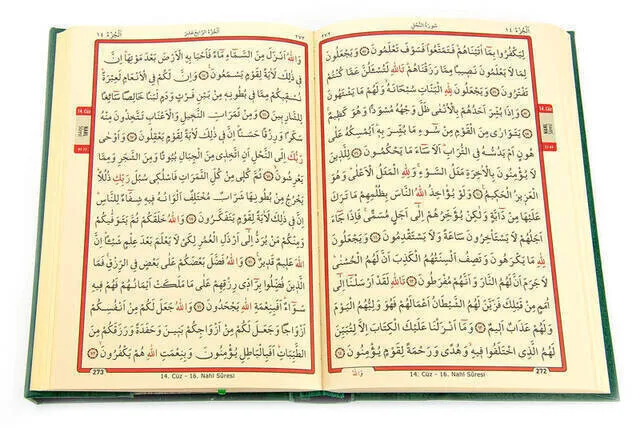 ٢٧٢ سُورَةُ النَّحْلِ اَلْجُزْءُ ١٤
لِيَكْفُرُوا بِمَٓا اٰتَيْنَاهُمْ فَتَمَتَّعُوا فَسَوْفَ تَعْلَمُونَ ﴿٥٥﴾ وَيَجْعَلُونَ
لِمَا لَا يَعْلَمُونَ نَصِيبًا مِمَّا رَزَقْنَاهُمْ تَاللّٰهِ لَتُسْـَٔلُنَّ عَمَّا كُنْتُمْ
تَفْتَرُونَ ﴿٥٦﴾ وَيَجْعَلُونَ لِلّٰهِ الْبَنَاتِ سُبْحَانَهُ وَلَهُمْ مَا يَشْتَهُونَ
﴿٥٧﴾ وَاِذَا بُشِّرَ اَحَدُهُمْ بِالْاُنْثٰى ظَلَّ وَجْهُهُ مُسْوَدًّا وَهُوَ كَظِيمٌ
﴿٥٨﴾ يَتَوَارٰى مِنَ الْقَوْمِ مِنْ سُٓوءِ مَا بُشِّرَ بِهِ اَيُمْسِكُهُ عَلٰى
هُونٍ اَمْ يَدُسُّهُ فِي التُّرَابِ اَلَا سَٓاءَ مَا يَحْكُمُونَ ﴿٥٩﴾ لِلَّذِينَ
لَا يُؤْمِنُونَ بِالْاٰخِرَةِ مَثَلُ السَّوْءِ وَلِلّٰهِ الْمَثَلُ الْاَعْلٰى وَهُوَ
الْعَزِيزُ الْحَكِيمُ ﴿٦٠﴾ وَلَوْ يُؤَاخِذُ اللّٰهُ النَّاسَ بِظُلْمِهِمْ مَا تَرَكَ
عَلَيْهَا مِنْ دَٓابَّةٍ وَلٰكِنْ يُؤَخِّرُهُمْ اِلٰٓى اَجَلٍ مُسَمًّى فَاِذَا جَٓاءَ
اَجَلُهُمْ لَا يَسْتَأْخِرُونَ سَاعَةً وَلَا يَسْتَقْدِمُونَ ﴿٦١﴾ وَيَجْعَلُونَ
لِلّٰهِ مَا يَكْرَهُونَ وَتَصِفُ اَلْسِنَتُهُمُ الْكَذِبَ اَنَّ لَهُمُ الْحُسْنٰى
لَا جَرَمَ اَنَّ لَهُمُ النَّارَ وَاَنَّهُمْ مُفْرَطُونَ ﴿٦٢﴾ تَاللّٰهِ لَقَدْ اَرْسَلْنَٓا اِلٰٓى
اُمَمٍ مِنْ قَبْلِكَ فَزَيَّنَ لَهُمُ الشَّيْطَانُ اَعْمَالَهُمْ فَهُوَ وَلِيُّهُمُ الْيَوْمَ
وَلَهُمْ عَذَابٌ اَلِيمٌ ﴿٦٣﴾ وَمَٓا اَنْزَلْنَا عَلَيْكَ الْكِتَابَ اِلَّا لِتُبَيِّنَ
لَهُمُ الَّذِي اخْتَلَفُوا فِيهِ وَهُدًى وَرَحْمَةً لِقَوْمٍ يُؤْمِنُونَ ﴿٦٤﴾
وَاللّٰهُ
14. Cüz - 16. Nahl Sûresi 272
14. Cüz
NAHL
Sûresi
اَلْجُزْءُ الرَّابِعَ عَشَرَ ٢٧٣ اَلْجُزْءُ ١٤
وَاللّٰهُ اَنْزَلَ مِنَ السَّمَٓاءِ مَٓاءً فَاَحْيَا بِهِ الْاَرْضَ بَعْدَ مَوْتِهَا اِنَّ
فِي ذٰلِكَ لَاٰيَةً لِقَوْمٍ يَسْمَعُونَ ﴿٦٥﴾ وَاِنَّ لَكُمْ فِي الْاَنْعَامِ لَعِبْرَةً
نُسْقِيكُمْ مِمَّا فِي بُطُونِهِ مِنْ بَيْنِ فَرْثٍ وَدَمٍ لَبَنًا خَالِصًا سَٓائِغًا
لِلشَّارِبِينَ ﴿٦٦﴾ وَمِنْ ثَمَرَاتِ النَّخِيلِ وَالْاَعْنَابِ تَتَّخِذُونَ مِنْهُ
سَكَرًا وَرِزْقًا حَسَنًا اِنَّ فِي ذٰلِكَ لَاٰيَةً لِقَوْمٍ يَعْقِلُونَ ﴿٦٧﴾ وَاَوْحٰى
رَبُّكَ اِلَى النَّحْلِ اَنِ اتَّخِذِي مِنَ الْجِبَالِ بُيُوتًا وَمِنَ الشَّجَرِ وَمِمَّا
يَعْرِشُونَ ﴿٦٨﴾ ثُمَّ كُلِي مِنْ كُلِّ الثَّمَرَاتِ فَاسْلُكِي سُبُلَ رَبِّكِ ذُلُلًا
يَخْرُجُ مِنْ بُطُونِهَا شَرَابٌ مُخْتَلِفٌ اَلْوَانُهُ فِيهِ شِفَٓاءٌ لِلنَّاسِ
اِنَّ فِي ذٰلِكَ لَاٰيَةً لِقَوْمٍ يَتَفَكَّرُونَ ﴿٦٩﴾ وَاللّٰهُ خَلَقَكُمْ ثُمَّ يَتَوَفّٰيكُمْ
وَمِنْكُمْ مَنْ يُرَدُّ اِلٰٓى اَرْذَلِ الْعُمُرِ لِكَيْ لَا يَعْلَمَ بَعْدَ عِلْمٍ شَيْـًٔا اِنَّ
اللّٰهَ عَلِيمٌ قَدِيرٌ ﴿٧٠﴾ وَاللّٰهُ فَضَّلَ بَعْضَكُمْ عَلٰى بَعْضٍ فِي الرِّزْقِ فَمَا
الَّذِينَ فُضِّلُوا بِرَٓادِّي رِزْقِهِمْ عَلٰى مَا مَلَكَتْ اَيْمَانُهُمْ فَهُمْ فِيهِ
سَوَٓاءٌ اَفَبِنِعْمَةِ اللّٰهِ يَجْحَدُونَ ﴿٧١﴾ وَاللّٰهُ جَعَلَ لَكُمْ مِنْ اَنْفُسِكُمْ
اَزْوَاجًا وَجَعَلَ لَكُمْ مِنْ اَزْوَاجِكُمْ بَنِينَ وَحَفَدَةً وَرَزَقَكُمْ مِنَ
الطَّيِّبَاتِ اَفَبِالْبَاطِلِ يُؤْمِنُونَ وَبِنِعْمَتِ اللّٰهِ هُمْ يَكْفُرُونَ ﴿٧٢﴾
273 14. Cüz - 16. Nahl Sûresi
14. Cüz
NAHL
Sûresi